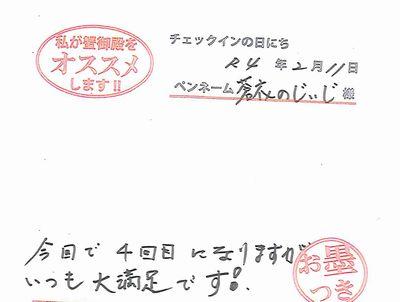 私が蟹御殿を
オススメ
します!!
チェックインの日にち
R4年2月11日
ペンネーム蒼衣のじぃじ様
今回で4回目になりますが
いつも大満足です!.
お墨
つき